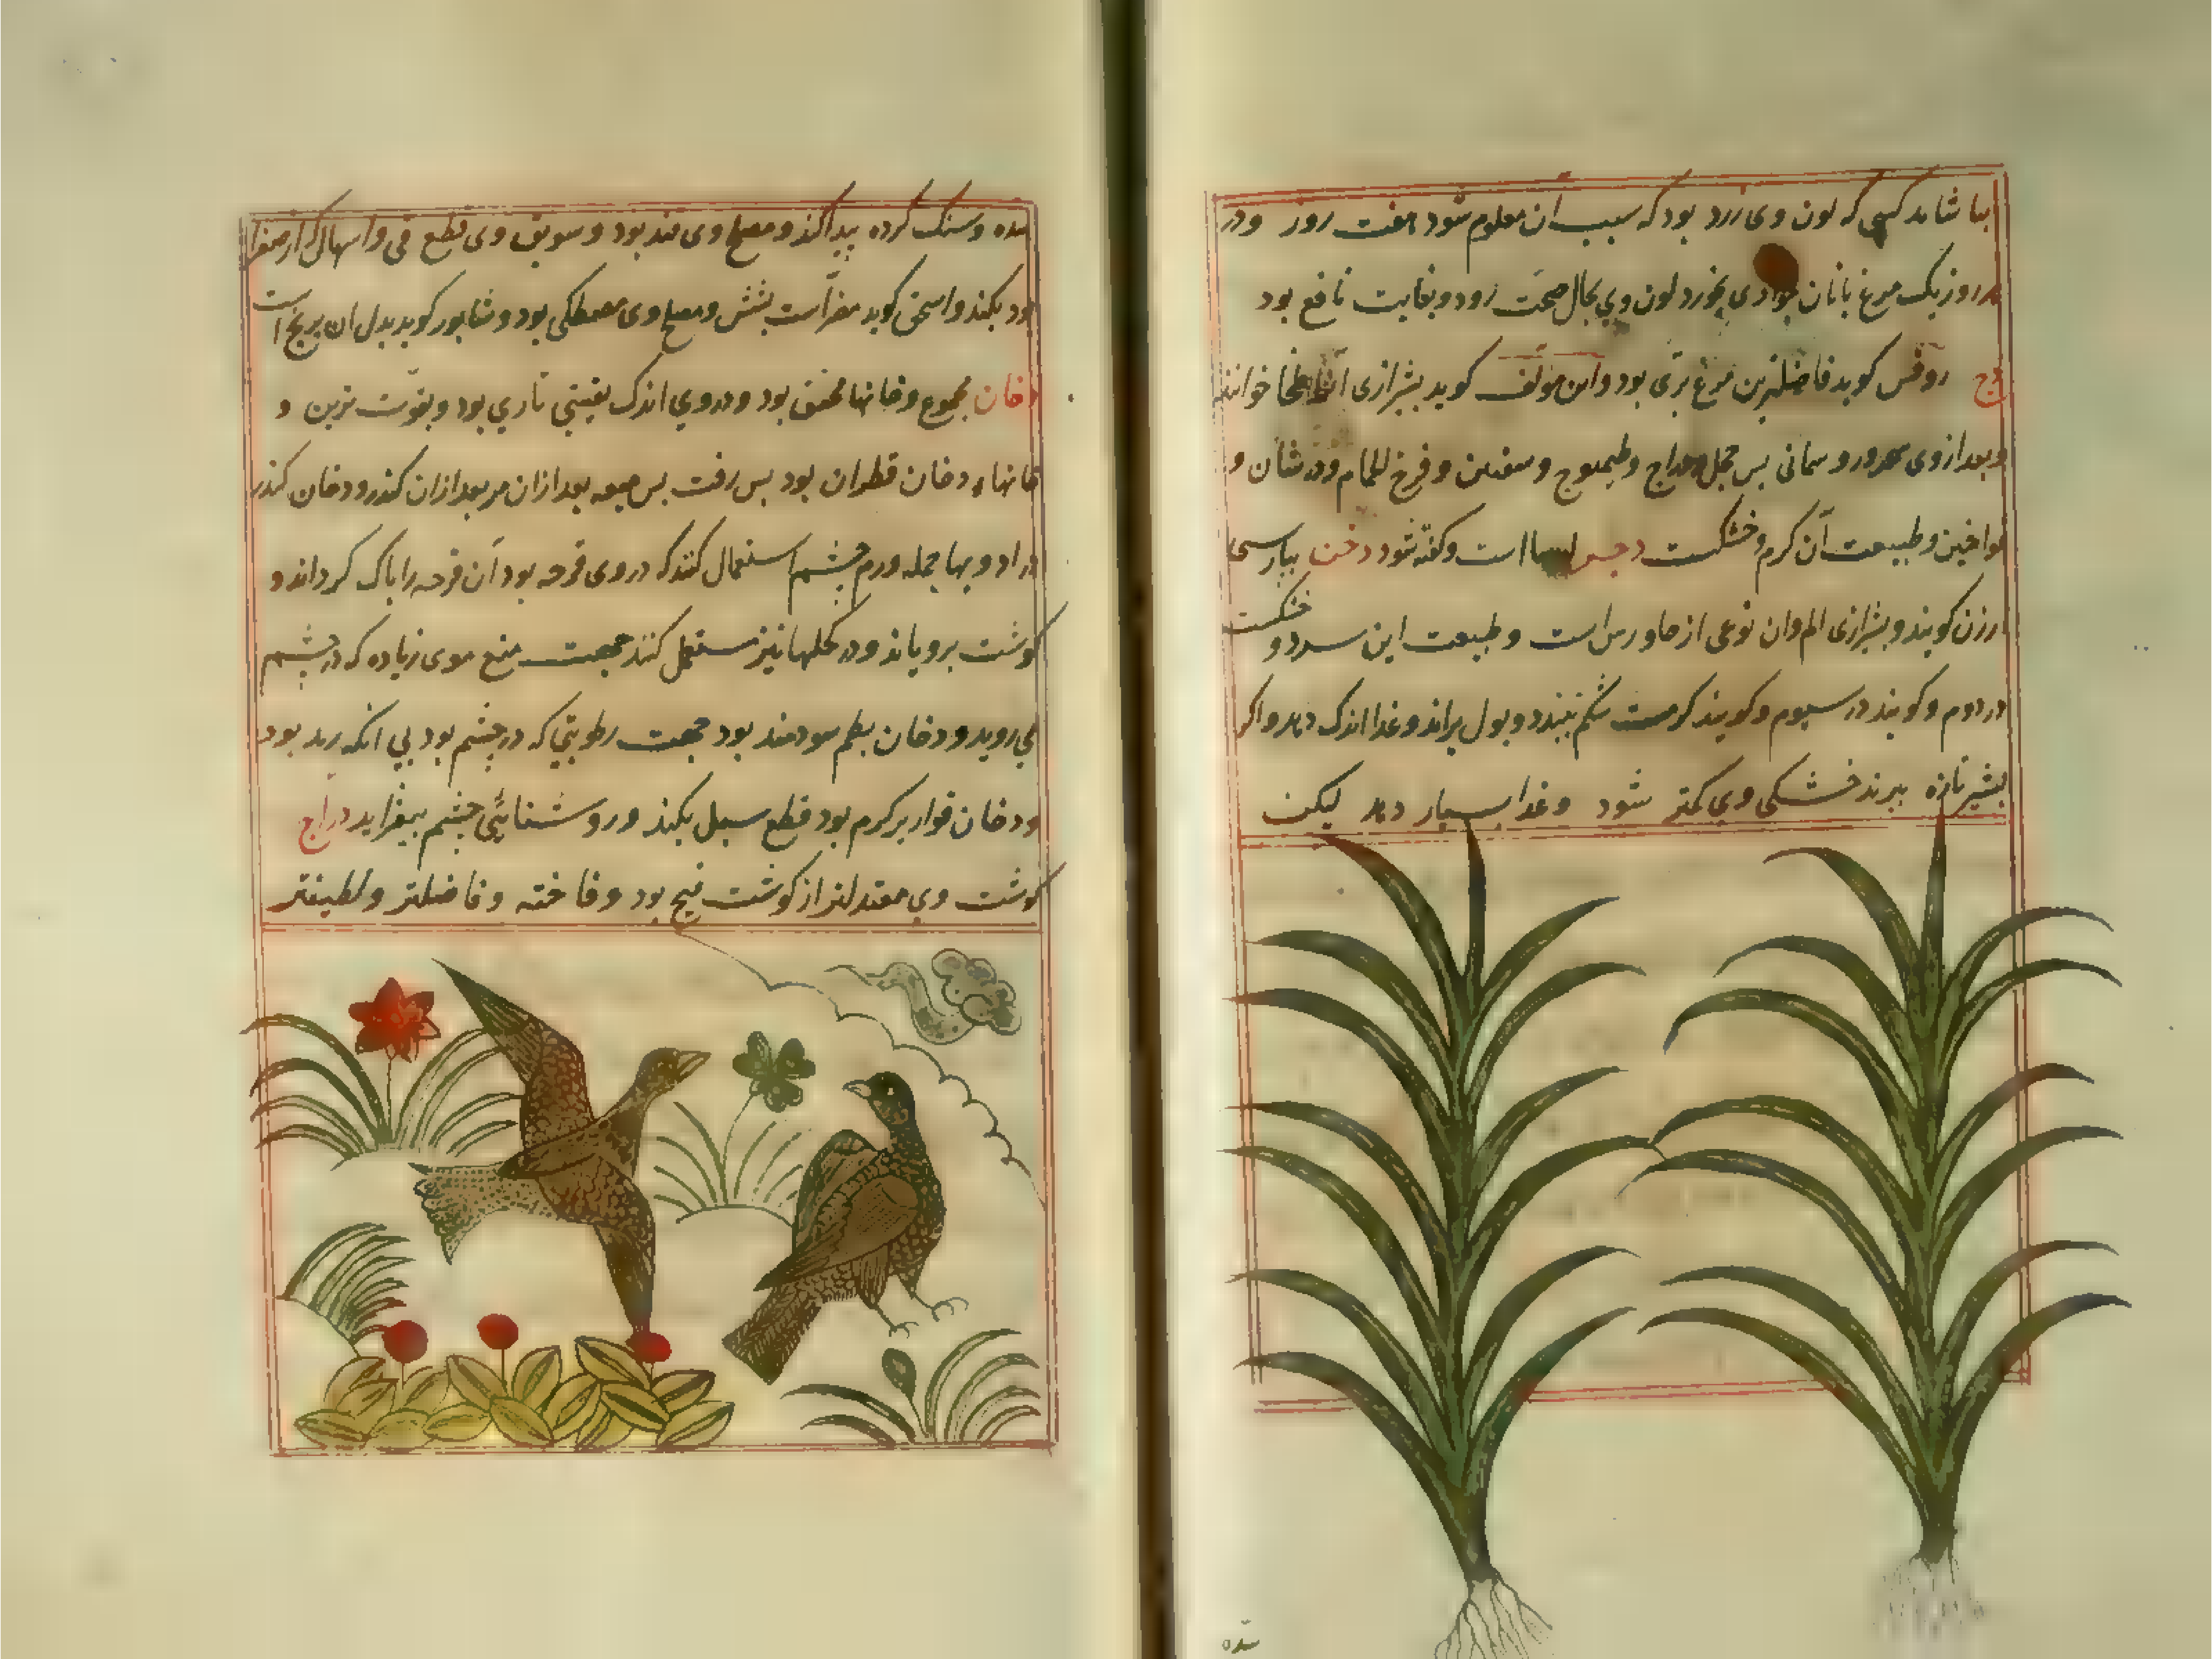 بیا شاید کسی که لون وی زرد بود که سبب آن معلوم شود هفت روز و در
هر روز یک مرغ با نان جواری بخورد لون وی بحال صحت رود و بغایت نافع بود
روفس کوید فاضلترین مرغ بری بود و این مولف کوید بشیرازی آنرا خوانند
و بعد از وی و سمانی پس حجل و دراج و طیهوج و سفنین و فرخ الحمام و ورشان و
فواخین و طبیعت آن کرم و خشکست دجر لوبیا است و کفته شود دخن بپارسی
ارزن کویند و بشیرازی الم و ان نوعی از جاورس است و طبیعت این سرد و خشکست
در دوم و کویند در سیوم و کویند کرمست شکم ببندد و بول براند و غذا اندک دهد و اکر
بشیر تازه بپزند خشکی وی کمتر شود و غذا بسیار دهد لیکن
سده
سده و سنک کرده پیدا کند و مصلح وی قند بود و سویق وی قطع قی و اسهال که از صفرا
بود بکند و اسحق کوید مضر است بشش و مصلح وی مصطکی بود و شاپور کوید بدل ان برنج است
دخان مجموع دخانها مجفف بود و در وی اندک بقیتی ناری بود و بقوت ترین د
خانهاء دخان قطران بود پس زفت پس میعه بعد ازان مر بعد ازان کندر و دخان کندر
در ادویها جمله ورم چشم استعمال کنند که در وی قرحه بود آن قرحه را پاک کرداند و
کوشت برویاند و در کحلها نیز مستعمل کنند جهت منع موی زیاده که در چشم
می روید و دخان بطم سودمند بود جهت رطوبتی که در چشم بود بی انکه رمد بود
و دخان قواریر کرم بود قطع سبل بکند و روشنائی چشم بیفزاید دراج
کوشت وی معتدلتر از کوشت بود و فاخته و فاضلتر و لطیفتر